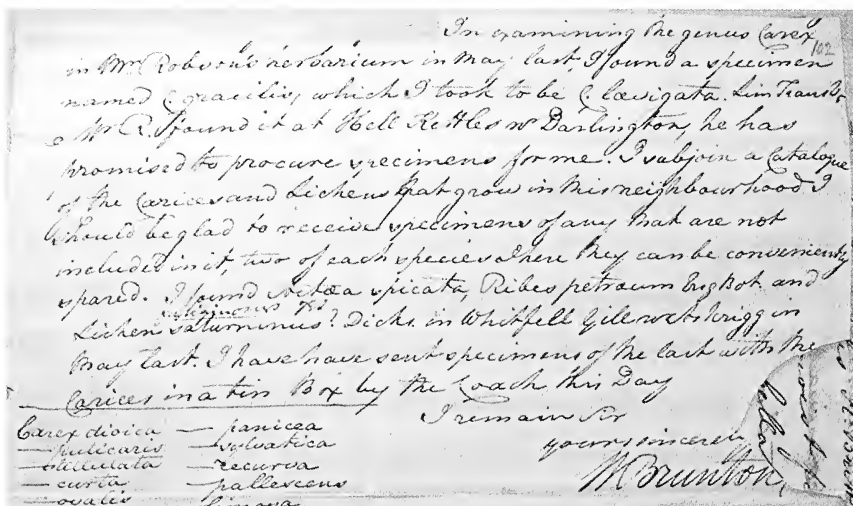 In examining the genus Carex
102
in Mr Robson's herbarium in May last, I found a specimen
named C. gracilis, which I took to be C. lævigata. Lin Trans
Mr R. found it at Hell Kettles nr Darlington, he has
promised to procure specimens for me. I subjoin a Catalogue
of the Carices and Lichens that grow in this neighbourhood. I
should be glad to receive specimens of any that are not
included in it, two of each species where they can be conveniently
spared. I found a spicata, Ribes petræum Eng Bot and
Lichen saturninus? Dicks. in Whitfell Gill in
May last. I have have sent specimens of the last with the
Carices in a tin Box by the Coach this Day
I remain Sir
yours sincerely
W Brunton
Carex dioica — panicea
— pulicaris — sylvatica
— stellulata — recurva
— curta — pallescens
— ovalis